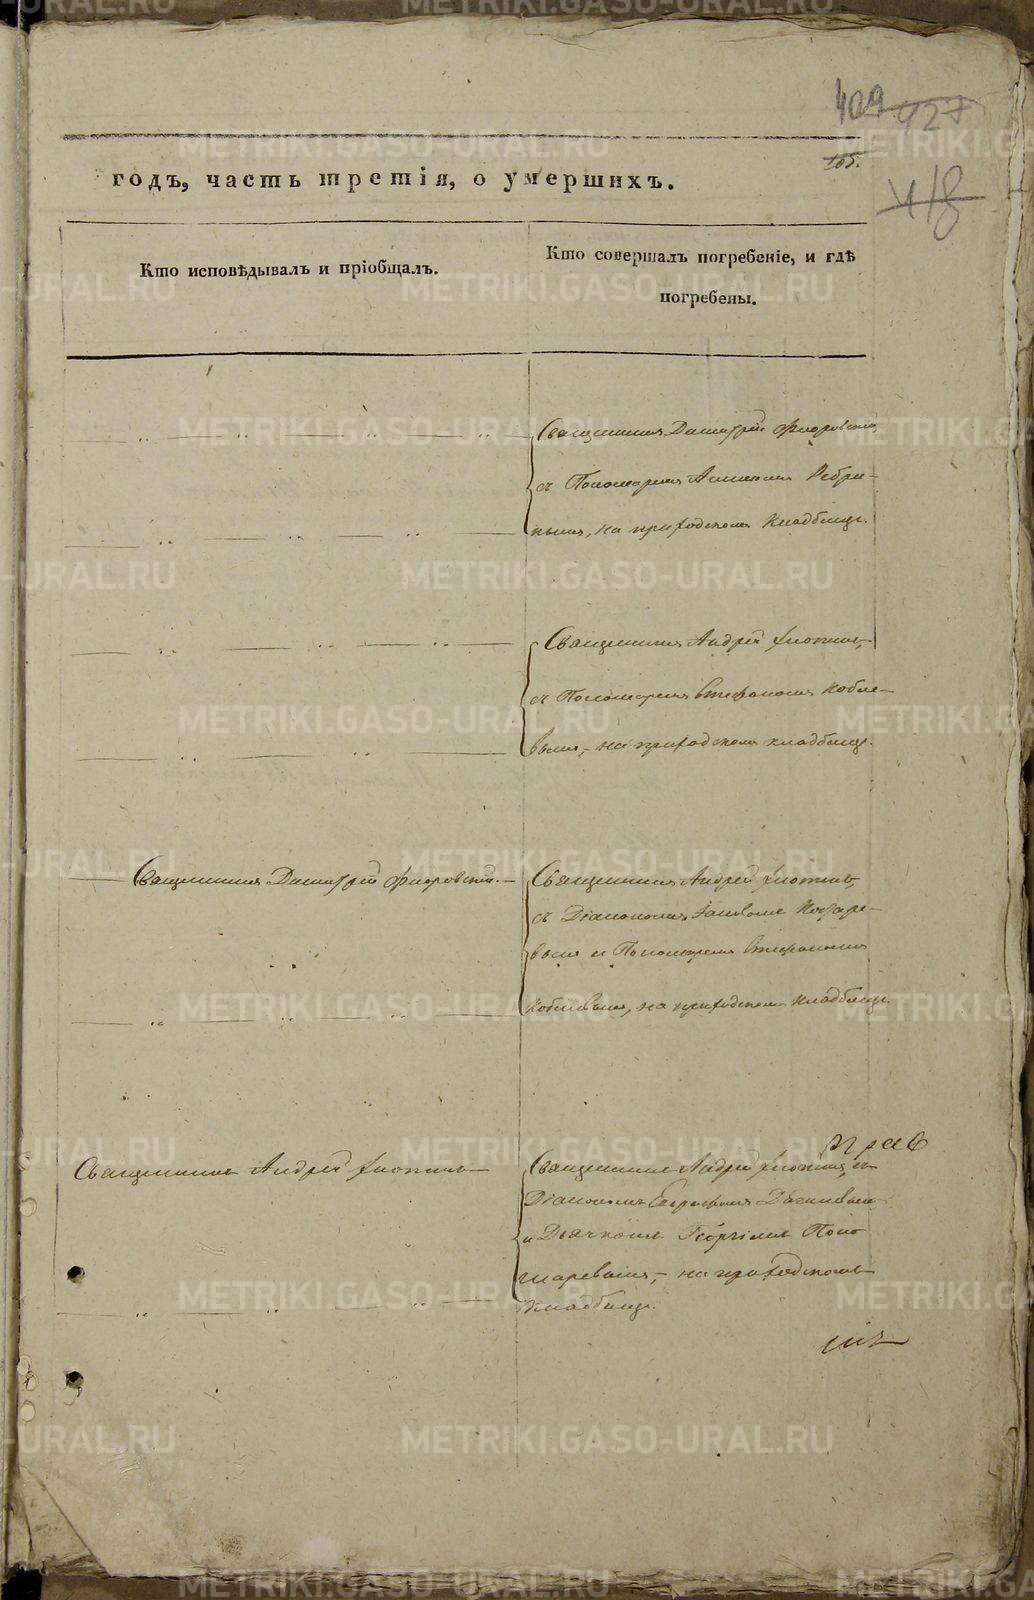 409
427
165.
418
годъ, часть третія, о умершихъ.
Кто исповѣдывалъ и пріобщалъ.
Кто совершалъ погребеніе, и гдѣ
погребены.
Священникъ Димитрій Флоровской
съ Пономаремъ
на приходскомъ кладбищѣ.
Священникъ Андрей
съ Пономаремъ Стефаномъ Кобле-
вымъ, на приходскомъ кладбищѣ.
Священникъ Димитрій Флоровскій.
Священникъ Андрей
съ Діакономъ Іаковомъ
вымъ и Пономаремъ Стефаномъ
Коблевымъ, на приходскомъ кладбищѣ.
Священникъ Андрей
Священникъ Андрей съ
Діакономъ
и Дьячкомъ Георгіемъ Поно
маревымъ, на приходскомъ
кладбищѣ.
METRIKI.GASO-URAL.RU